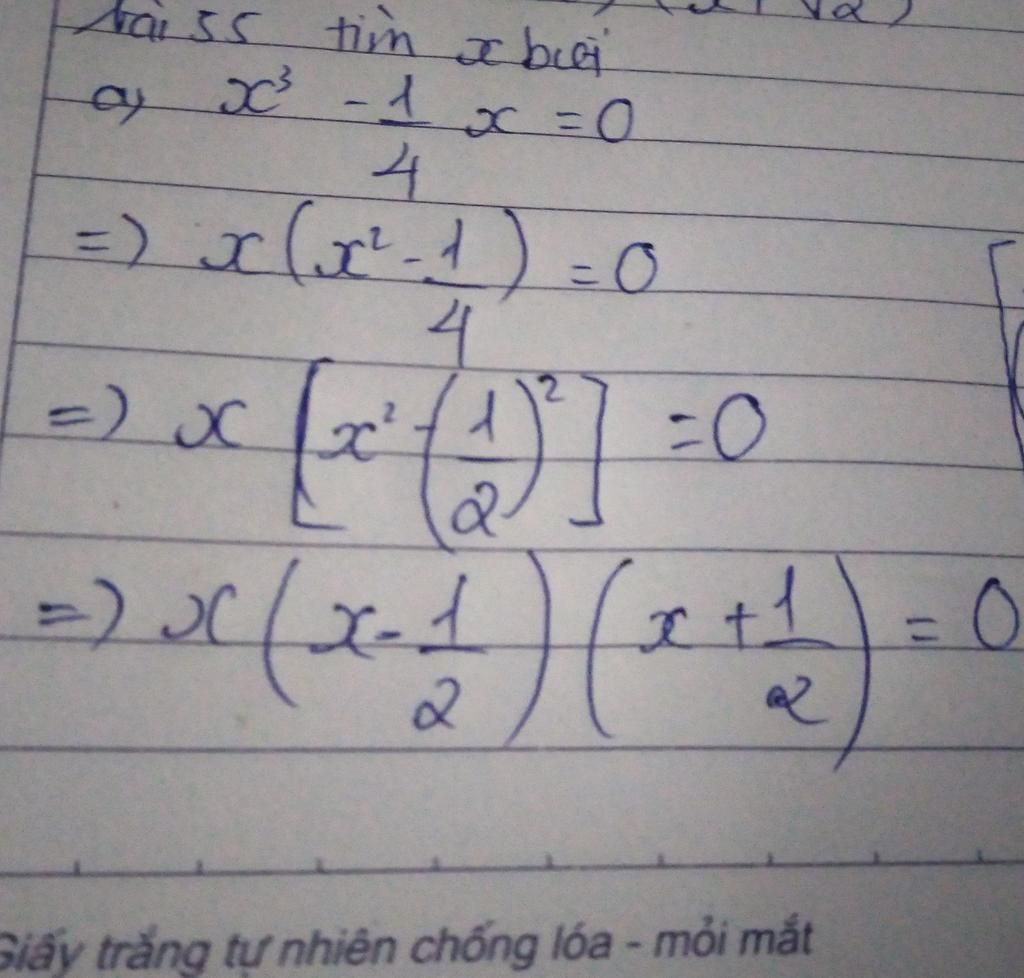 (x + √2)
bài 55 tìm x biết
a, x³ - 1/4 x = 0
=) x(x² - 1/4) = 0
=) x [x² - (1/2)²] = 0
=) x (x - 1/2) (x + 1/2) = 0
Giấy trắng tự nhiên chống lóa - mỏi mắt